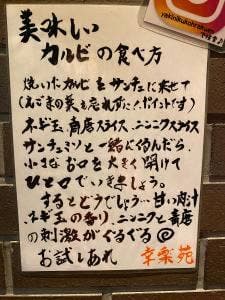 美味しい
カルビの食べ方
焼いたカルビをサンチュに来せて
(えごまの葉も忘れずに!ポイントです)
ネギ玉、青唐スライス、ニンニクスライス
サンチュミソと一緒に包んだら、
小さなお口を大きく開けて
ひと口でいきましょう。
するとどうでしょう…甘い肉汁
ネギ玉の香り、ニンニクと青唐
の刺激がぐるぐる
お試しあれ 幸楽苑